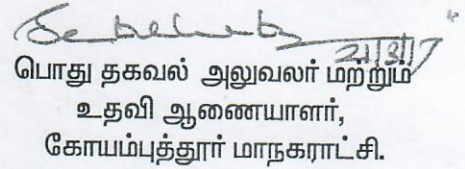 21/3/17
பொது தகவல் அலுவலர் மற்றும்
உதவி ஆணையாளர்,
கோயம்புத்தூர் மாநகராட்சி.